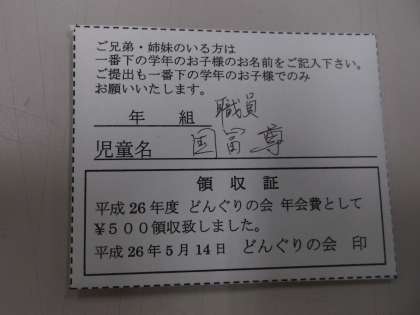 ご兄弟・姉妹のいる方は
一番下の学年のお子様のお名前をご記入下さい。
ご提出も一番下の学年のお子様でのみ
お願いいたします。
年 組 職員
児童名 国冨尊
領収証
平成26年度 どんぐりの会 年会費として
¥500領収致しました。
平成26年5月14日 どんぐりの会 印